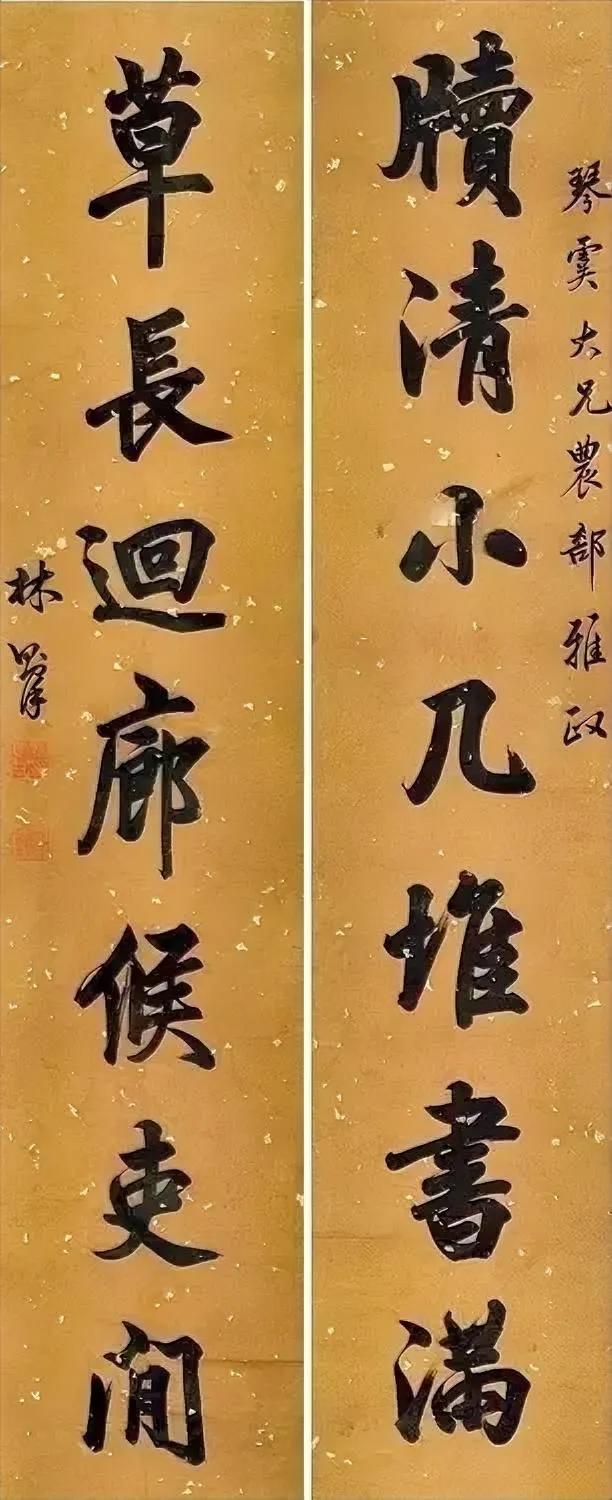 琴大兄農部雅政
牘清小几堆書滿
草長迴廊候吏閒
林則徐